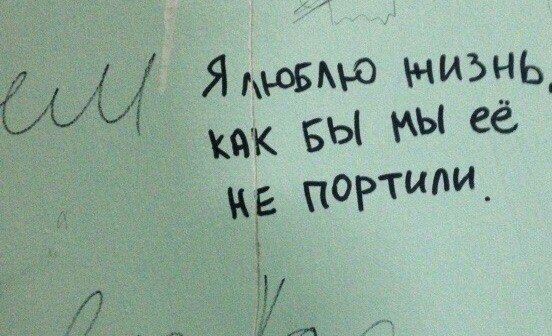 Я люблю жизнь,
как бы мы её
не портили.